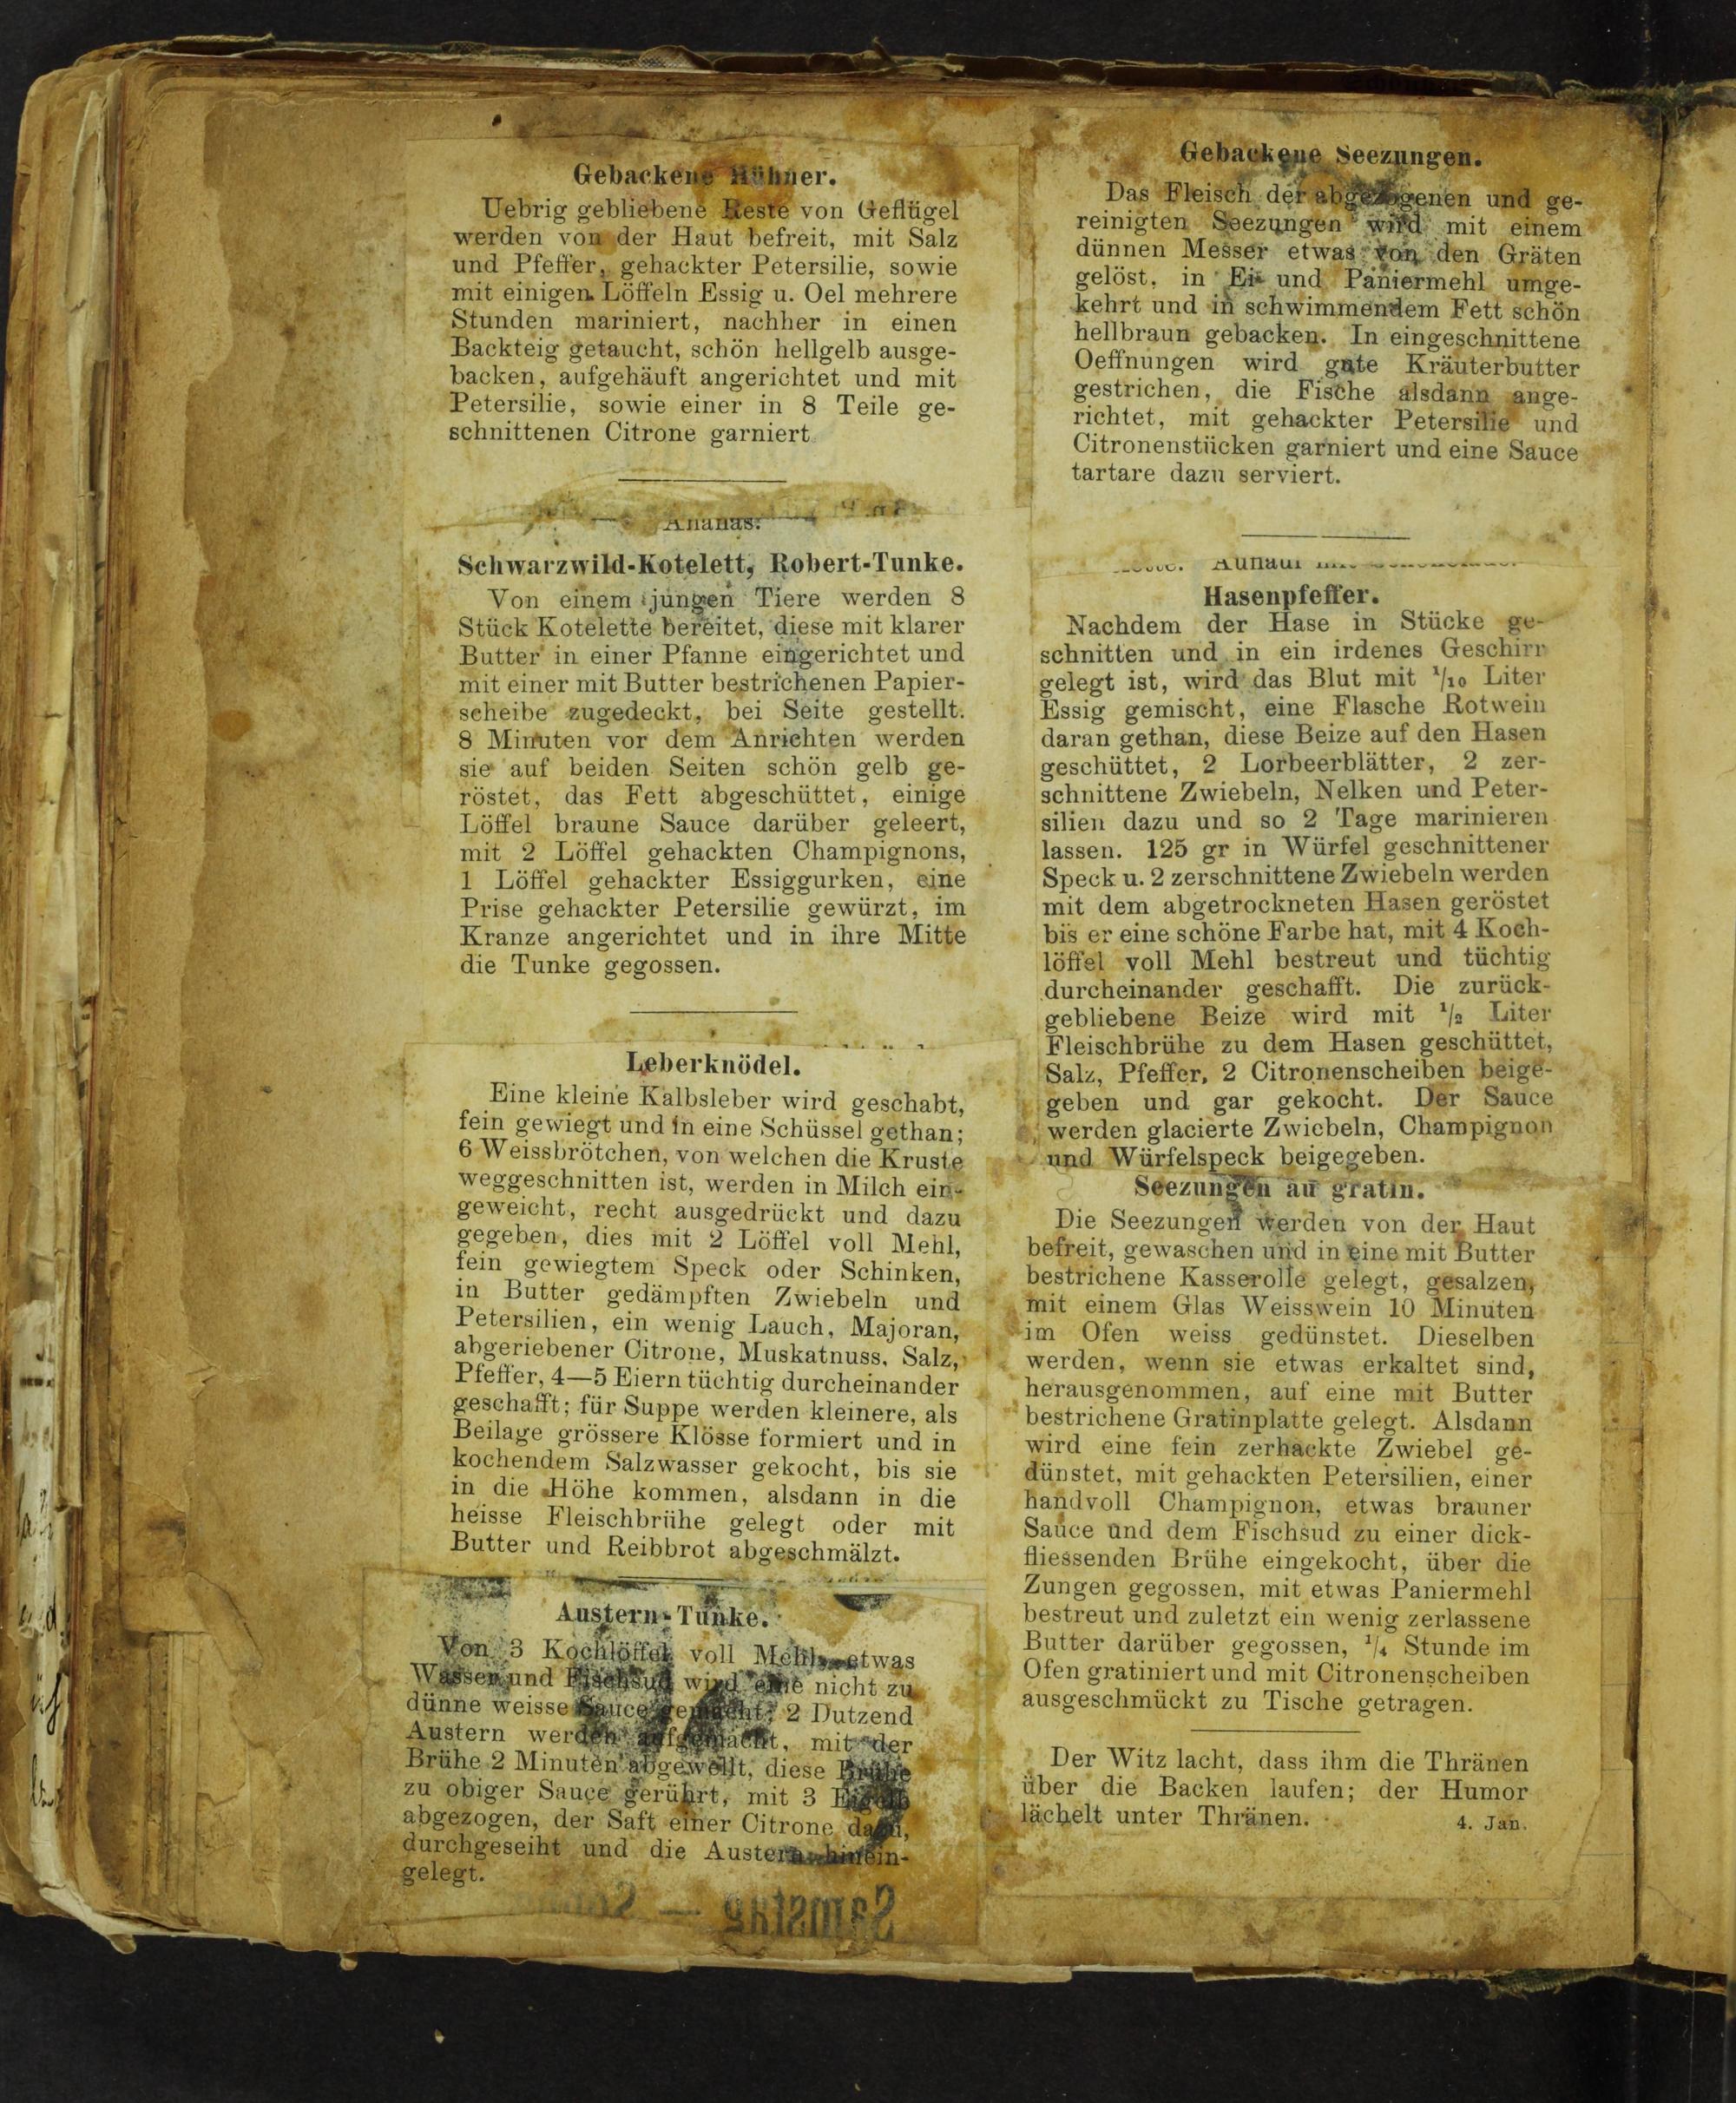 Gebackene Hühner.
Uebrig gebliebene Reste von Geflügel
werden von der Haut befreit, mit Salz
und Pfeffer, gehackter Petersilie, sowie
mit einigen Löffeln Essig u. Oel mehrere
Stunden mariniert, nachher in einen
Backteig getaucht, schön hellgelb ausge-
backen, aufgehäuft angerichtet und mit
Petersilie, sowie einer in 8 Teile ge-
schnittenen Citrone garniert
Ananas.
Schwarzwild-Kotelett, Robert-Tunke.
Von einem jungen Tiere werden 8
Stück Kotelette bereitet, diese mit klarer
Butter in einer Pfanne eingerichtet und
mit einer mit Butter bestrichenen Papier-
scheibe zugedeckt, bei Seite gestellt.
8 Minuten vor dem Anrichten werden
sie auf beiden Seiten schön gelb ge-
röstet, das Fett abgeschüttet, einige
Löffel braune Sauce darüber geleert,
mit 2 Löffel gehackten Champignons,
1 Löffel gehackter Essiggurken, eine
Prise gehackter Petersilie gewürzt, im
Kranze angerichtet und in ihre Mitte
die Tunke gegossen.
Leberknödel.
Eine kleine Kalbsleber wird geschabt,
fein gewiegt und in eine Schüssel gethan;
6 Weissbrötchen, von welchen die Kruste
weggeschnitten ist, werden in Milch ein-
geweicht, recht ausgedrückt und dazu
gegeben, dies mit 2 Löffel voll Mehl,
fein gewiegtem Speck oder Schinken,
in Butter gedämpften Zwiebeln und
Petersilien, ein wenig Lauch, Majoran,
abgeriebener Citrone, Muskatnuss, Salz,
Pfeffer, 4—5 Eiern tüchtig durcheinander
geschafft; für Suppe werden kleinere, als
Beilage grössere Klösse formiert und in
kochendem Salzwasser gekocht, bis sie
in die Höhe kommen, alsdann in die
heisse Fleischbrühe gelegt oder mit
Butter und Reibbrot abgeschmälzt.
Austern-Tunke.
Von 3 Kochlöffel voll Mehl, etwas
Wasser und Fischsud wird eine nicht zu
dünne weisse Sauce gemacht; 2 Dutzend
Austern werden aufgemacht, mit der
Brühe 2 Minuten abgewellt, diese Brühe
zu obiger Sauce gerührt, mit 3 Eigelb
abgezogen, der Saft einer Citrone dazu,
durchgeseiht und die Austern hinein-
gelegt.
Samstag —
Gebackene Seezungen.
Das Fleisch der abgezogenen und ge-
reinigten Seezungen wird mit einem
dünnen Messer etwas von den Gräten
gelöst, in Ei und Paniermehl umge-
kehrt und in schwimmendem Fett schön
hellbraun gebacken. In eingeschnittene
Oeffnungen wird gute Kräuterbutter
gestrichen, die Fische alsdann ange-
richtet, mit gehackter Petersilie und
Citronenstücken garniert und eine Sauce
tartare dazu serviert.
Hasenpfeffer.
Nachdem der Hase in Stücke ge-
schnitten und in ein irdenes Geschirr
gelegt ist, wird das Blut mit 1/10 Liter
Essig gemischt, eine Flasche Rotwein
daran gethan, diese Beize auf den Hasen
geschüttet, 2 Lorbeerblätter, 2 zer-
schnittene Zwiebeln, Nelken und Peter-
silien dazu und so 2 Tage marinieren
lassen. 125 gr in Würfel geschnittener
Speck u. 2 zerschnittene Zwiebeln werden
mit dem abgetrockneten Hasen geröstet
bis er eine schöne Farbe hat, mit 4 Koch-
löffel voll Mehl bestreut und tüchtig
durcheinander geschafft. Die zurück-
gebliebene Beize wird mit 1/2 Liter
Fleischbrühe zu dem Hasen geschüttet,
Salz, Pfeffer, 2 Citronenscheiben beige-
geben und gar gekocht. Der Sauce
werden glacierte Zwiebeln, Champignon
und Würfelspeck beigegeben.
Seezungen au gratin.
Die Seezungen werden von der Haut
befreit, gewaschen und in eine mit Butter
bestrichene Kasserolle gelegt, gesalzen,
mit einem Glas Weisswein 10 Minuten
im Ofen weiss gedünstet. Dieselben
werden, wenn sie etwas erkaltet sind,
herausgenommen, auf eine mit Butter
bestrichene Gratinplatte gelegt. Alsdann
wird eine fein zerhackte Zwiebel ge-
dünstet, mit gehackten Petersilien, einer
handvoll Champignon, etwas brauner
Sauce und dem Fischsud zu einer dick-
fliessenden Brühe eingekocht, über die
Zungen gegossen, mit etwas Paniermehl
bestreut und zuletzt ein wenig zerlassene
Butter darüber gegossen, 1/4 Stunde im
Ofen gratiniert und mit Citronenscheiben
ausgeschmückt zu Tische getragen.
Der Witz lacht, dass ihm die Thränen
über die Backen laufen; der Humor
lächelt unter Thränen. 4. Jan.